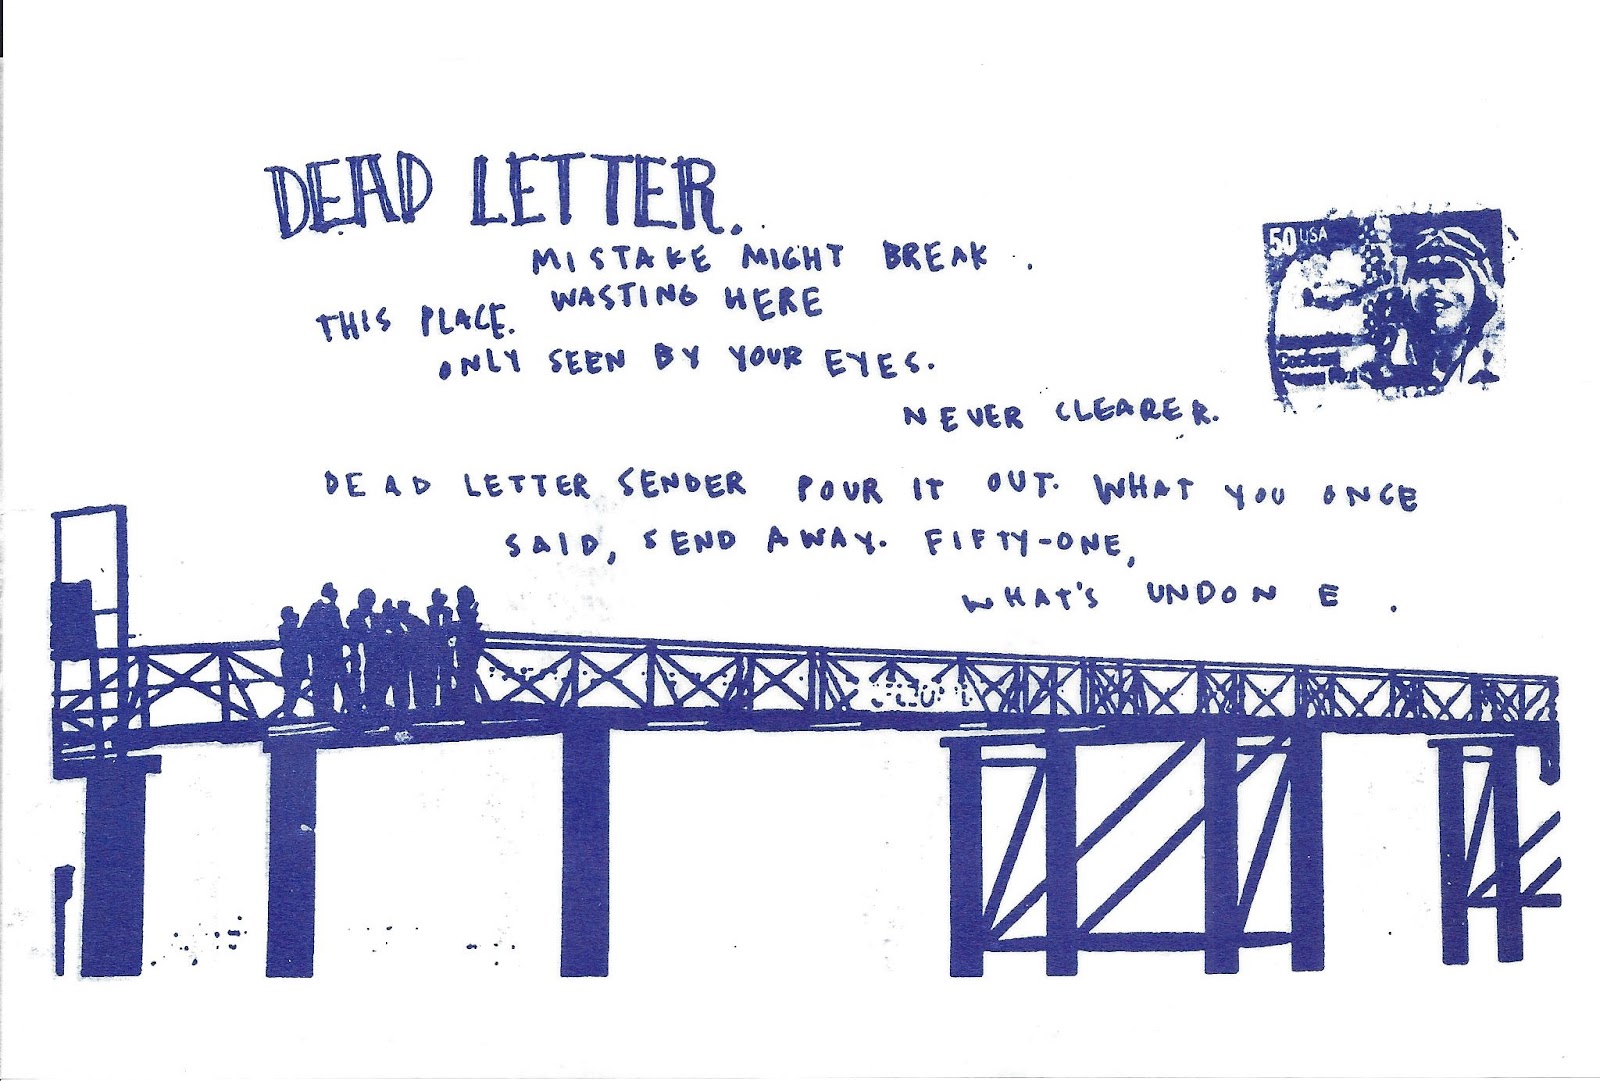 DEAD LETTER.
MISTAKE MIGHT BREAK.
THIS PLACE. WASTING HERE
ONLY SEEN BY YOUR EYES.
NEVER CLEARER.
DEAD LETTER SENDER POUR IT OUT. WHAT YOU ONCE
SAID, SEND AWAY. FIFTY-ONE,
WHAT'S UNDONE.
50 USA
Cochran